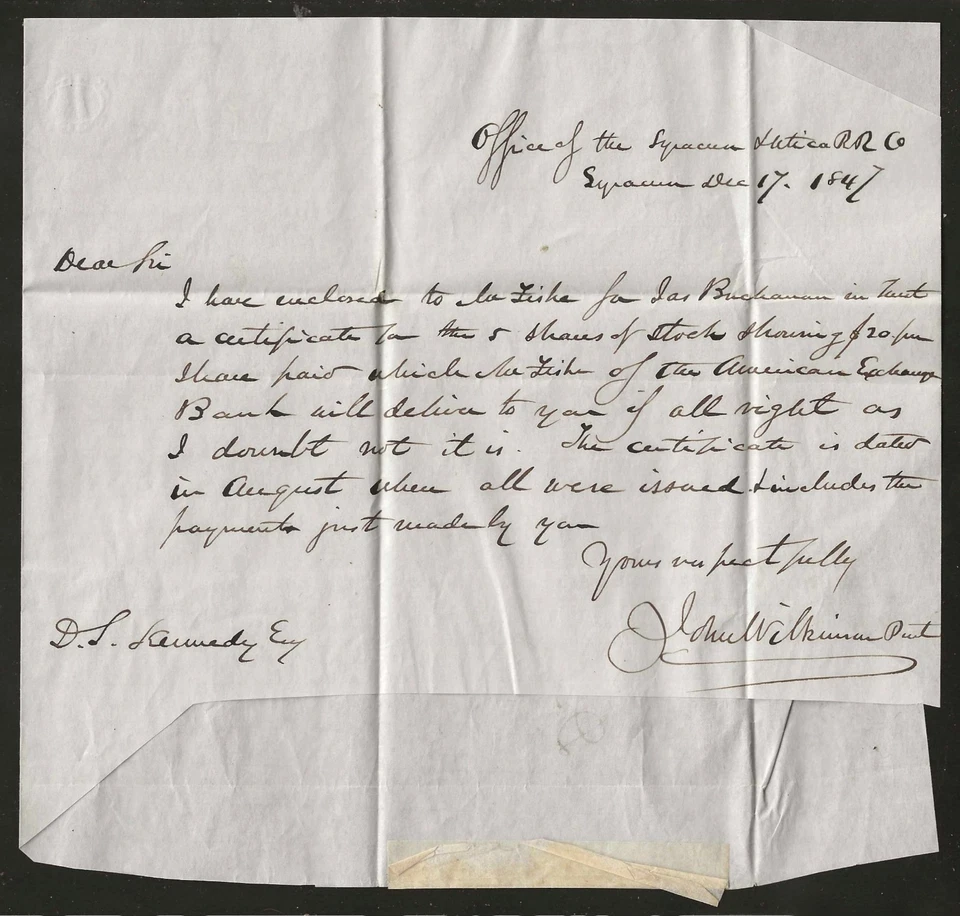 Office of the Syracuse & Utica R R Co
Syracuse Dec 17. 1847
Dear Sir
I have enclosed to Mr Fiske for Jas Buchanan in trust
a certificate for the 5 shares of stock showing $20 per
share paid which Mr Fiske of the American Exchange
Bank will deliver to you if all right as
I doubt not it is. The certificate is dated
in August when all were issued & includes the
payments just made by you
Yours respectfully
John Wilkinson Prest
D. S. Kennedy Esq